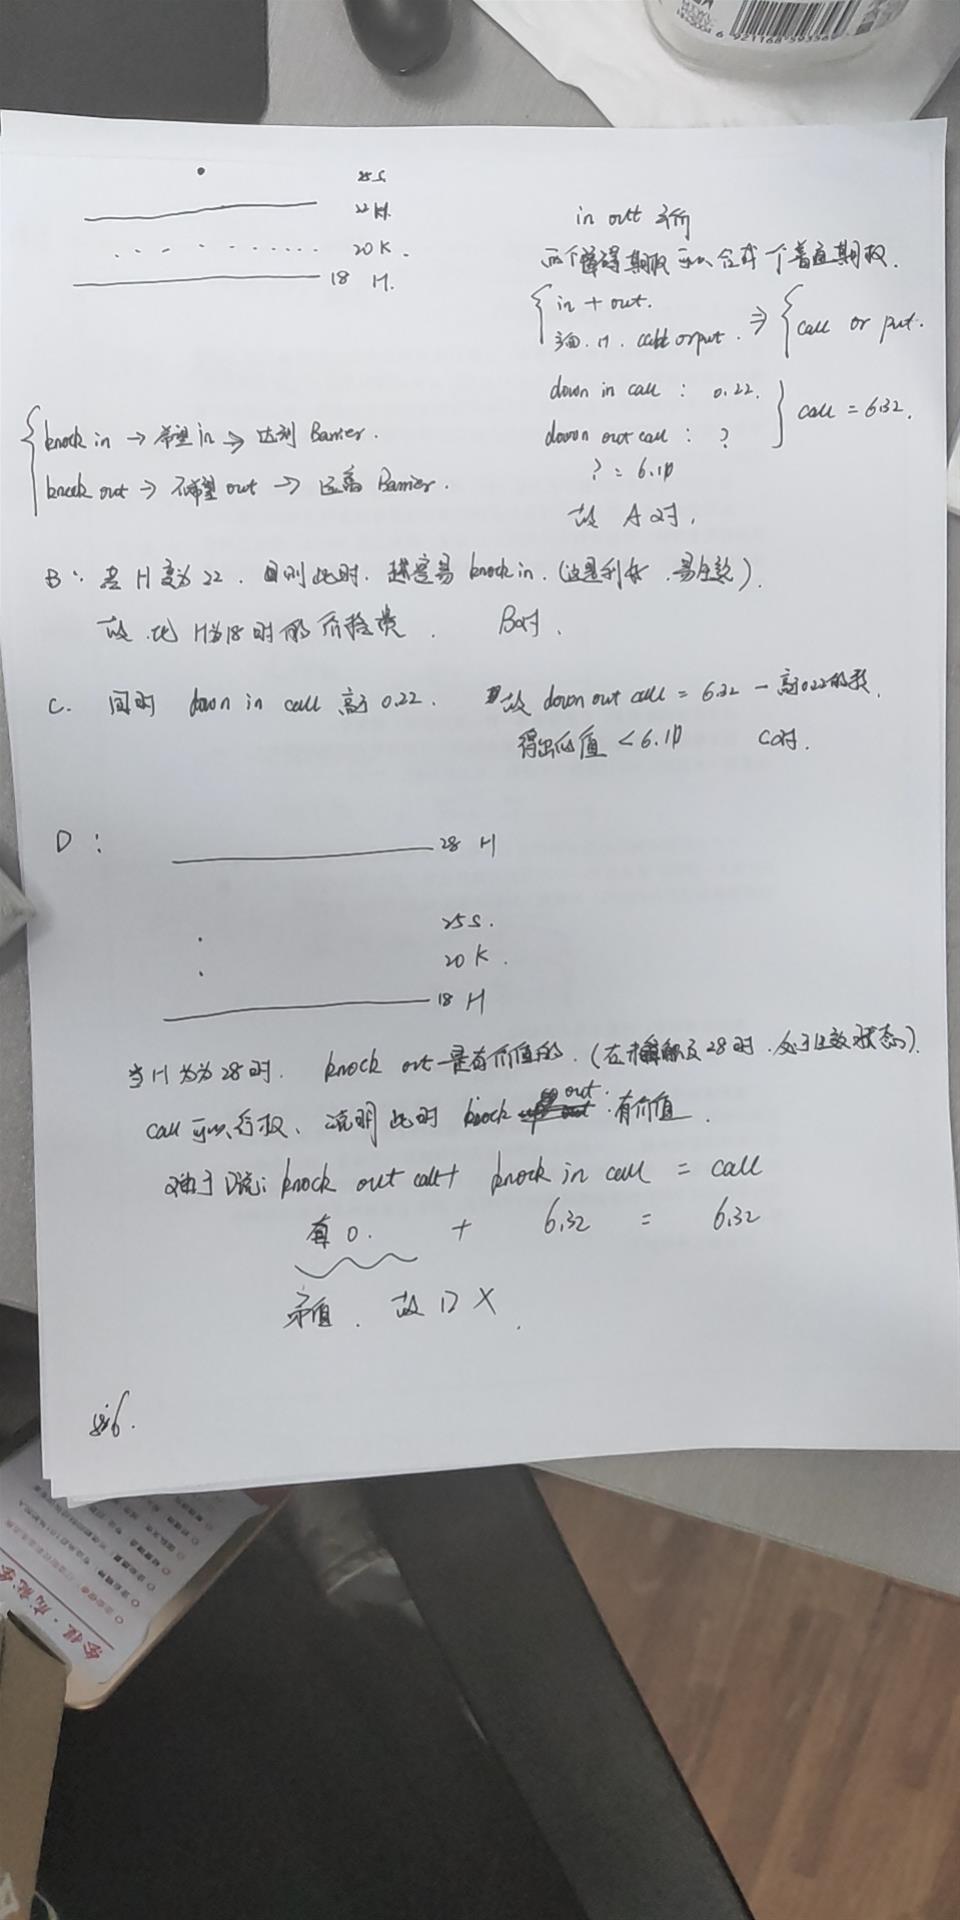 25 S
22 H.
20 K.
18 H.
in out 平价
两个障碍期权可以合成一个普通期权.
in + out.
同 H. call or put. ⇒ call or put.
down in call : 0.22.
down out call : ? call = 6.32.
? = 6.10
故 A 对,
knock in → 希望 in → 达到 Barrier.
knock out → 不希望 out → 远离 Barrier.
B: 若 H 变为 22. 则此时. 越容易 knock in. (这是利好, 易生效).
故. 比 H为18 时的价格贵. B对.
C. 同时 down in call 高于 0.22. 故 down out call = 6.32 - 高于0.22的数.
得出的值 < 6.10 C对.
D:
28 H
25 S.
20 K.
18 H
当 H 为 28 时. knock out 是有价值的. (在未触及 28 时. 处于生效状态).
call 可以行权、说明此时 knock out. 有价值.
knock out call + knock in call = call
有 0. + 6.32 = 6.32
矛盾. 故 D X.
6.
6 921168 593569